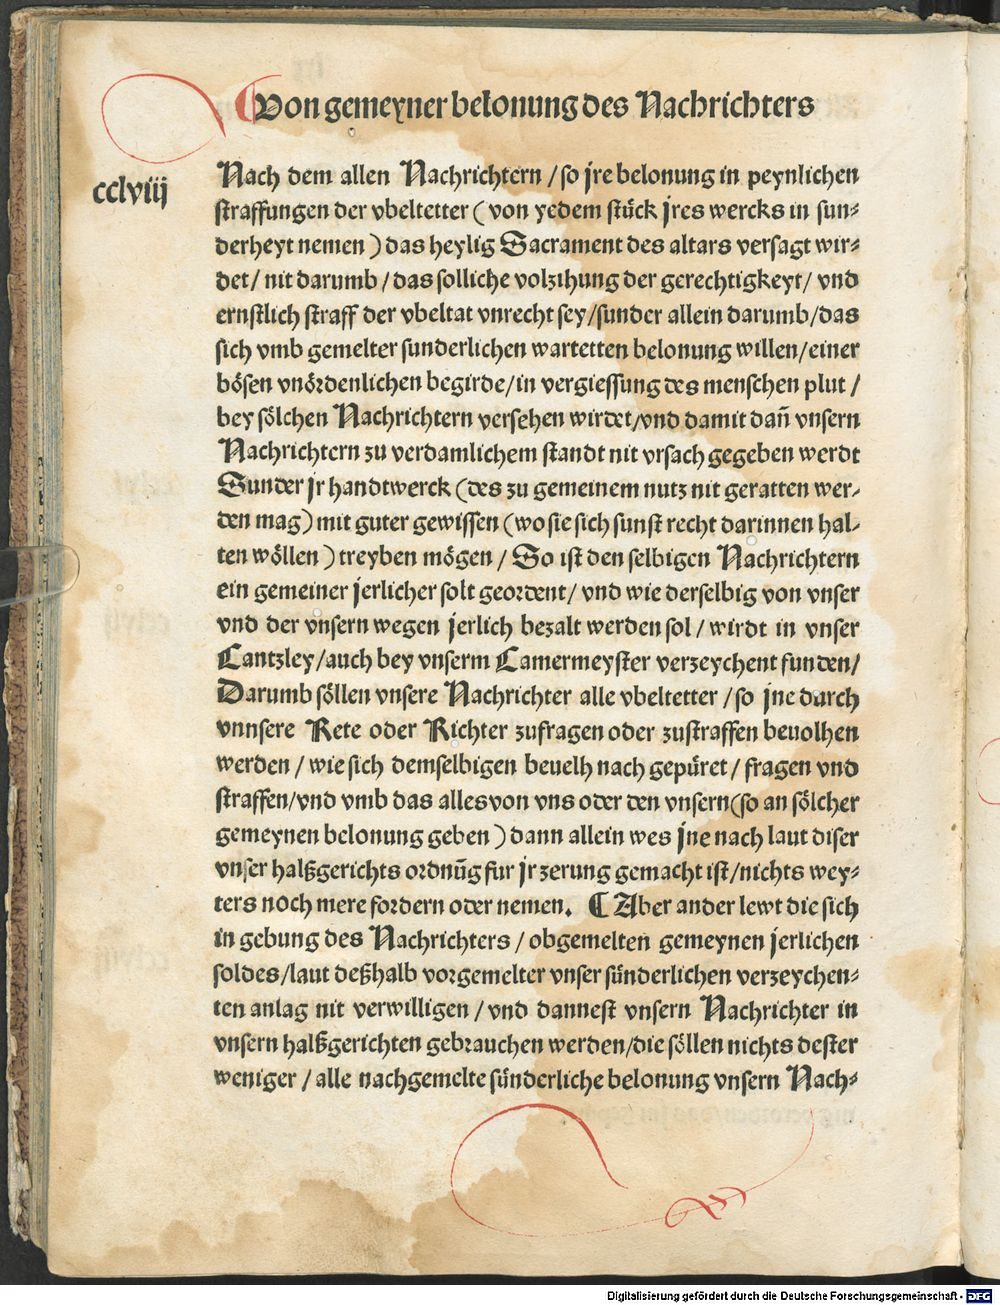 Von gemeyner belonung des Nachrichters
cclviij
Nach dem allen Nachrichtern / so jre belonung in peynlichen
straffungen der vbeltetter ( von yedem stück jres wercks in sun⸗
derheyt nemen ) das heylig Sacrament des altars versagt wir⸗
det / nit darumb / das solliche volzihung der gerechtigkeyt / vnd
ernstlich straff der vbeltat vnrecht sey / sunder allein darumb / das
sich vmb gemelter sunderlichen wartetten belonung willen / einer
bösen vnördenlichen begirde / in vergiessung des menschen plut /
bey sölchen Nachrichtern versehen wirdet / vnd damit dañ vnsern
Nachrichtern zu verdamlichem standt nit vrsach gegeben werdt
Sunder jr handtwerck ( des zu gemeinem nutz nit geratten wer⸗
den mag ) mit guter gewissen ( wo sie sich sunst recht darinnen hal⸗
ten wöllen ) treyben mögen / So ist den selbigen Nachrichtern
ein gemeiner jerlicher solt geordent / vnd wie derselbig von vnser
vnd der vnsern wegen jerlich bezalt werden sol / wirdt in vnser
Cantzley / auch bey vnserm Camermeyster verzeychent funden /
Darumb söllen vnsere Nachrichter alle vbeltetter / so jne durch
vnnsere Rete oder Richter zufragen oder zustraffen beuolhen
werden / wie sich demselbigen beuelh nach gepüret / fragen vnd
straffen / vnd vmb das alles von vns oder den vnsern ( so an sölcher
gemeynen belonung geben ) dann allein wes jne nach laut diser
vnser halßgerichts ordnũg fur jr zerung gemacht ist / nichts wey⸗
ters noch mere fordern oder nemen. ¶ Aber ander lewt die sich
in gebung des Nachrichters / obgemelten gemeynen jerlichen
soldes / laut deßhalb vorgemelter vnser sünderlichen verzeychen⸗
ten anlag nit verwilligen / vnd dannest vnsern Nachrichter in
vnsern halßgerichten gebrauchen werden / die söllen nichts dester
weniger / alle nachgemelte sünderliche belonung vnsern Nach⸗
Digitalisierung gefördert durch die Deutsche Forschungsgemeinschaft - DFG